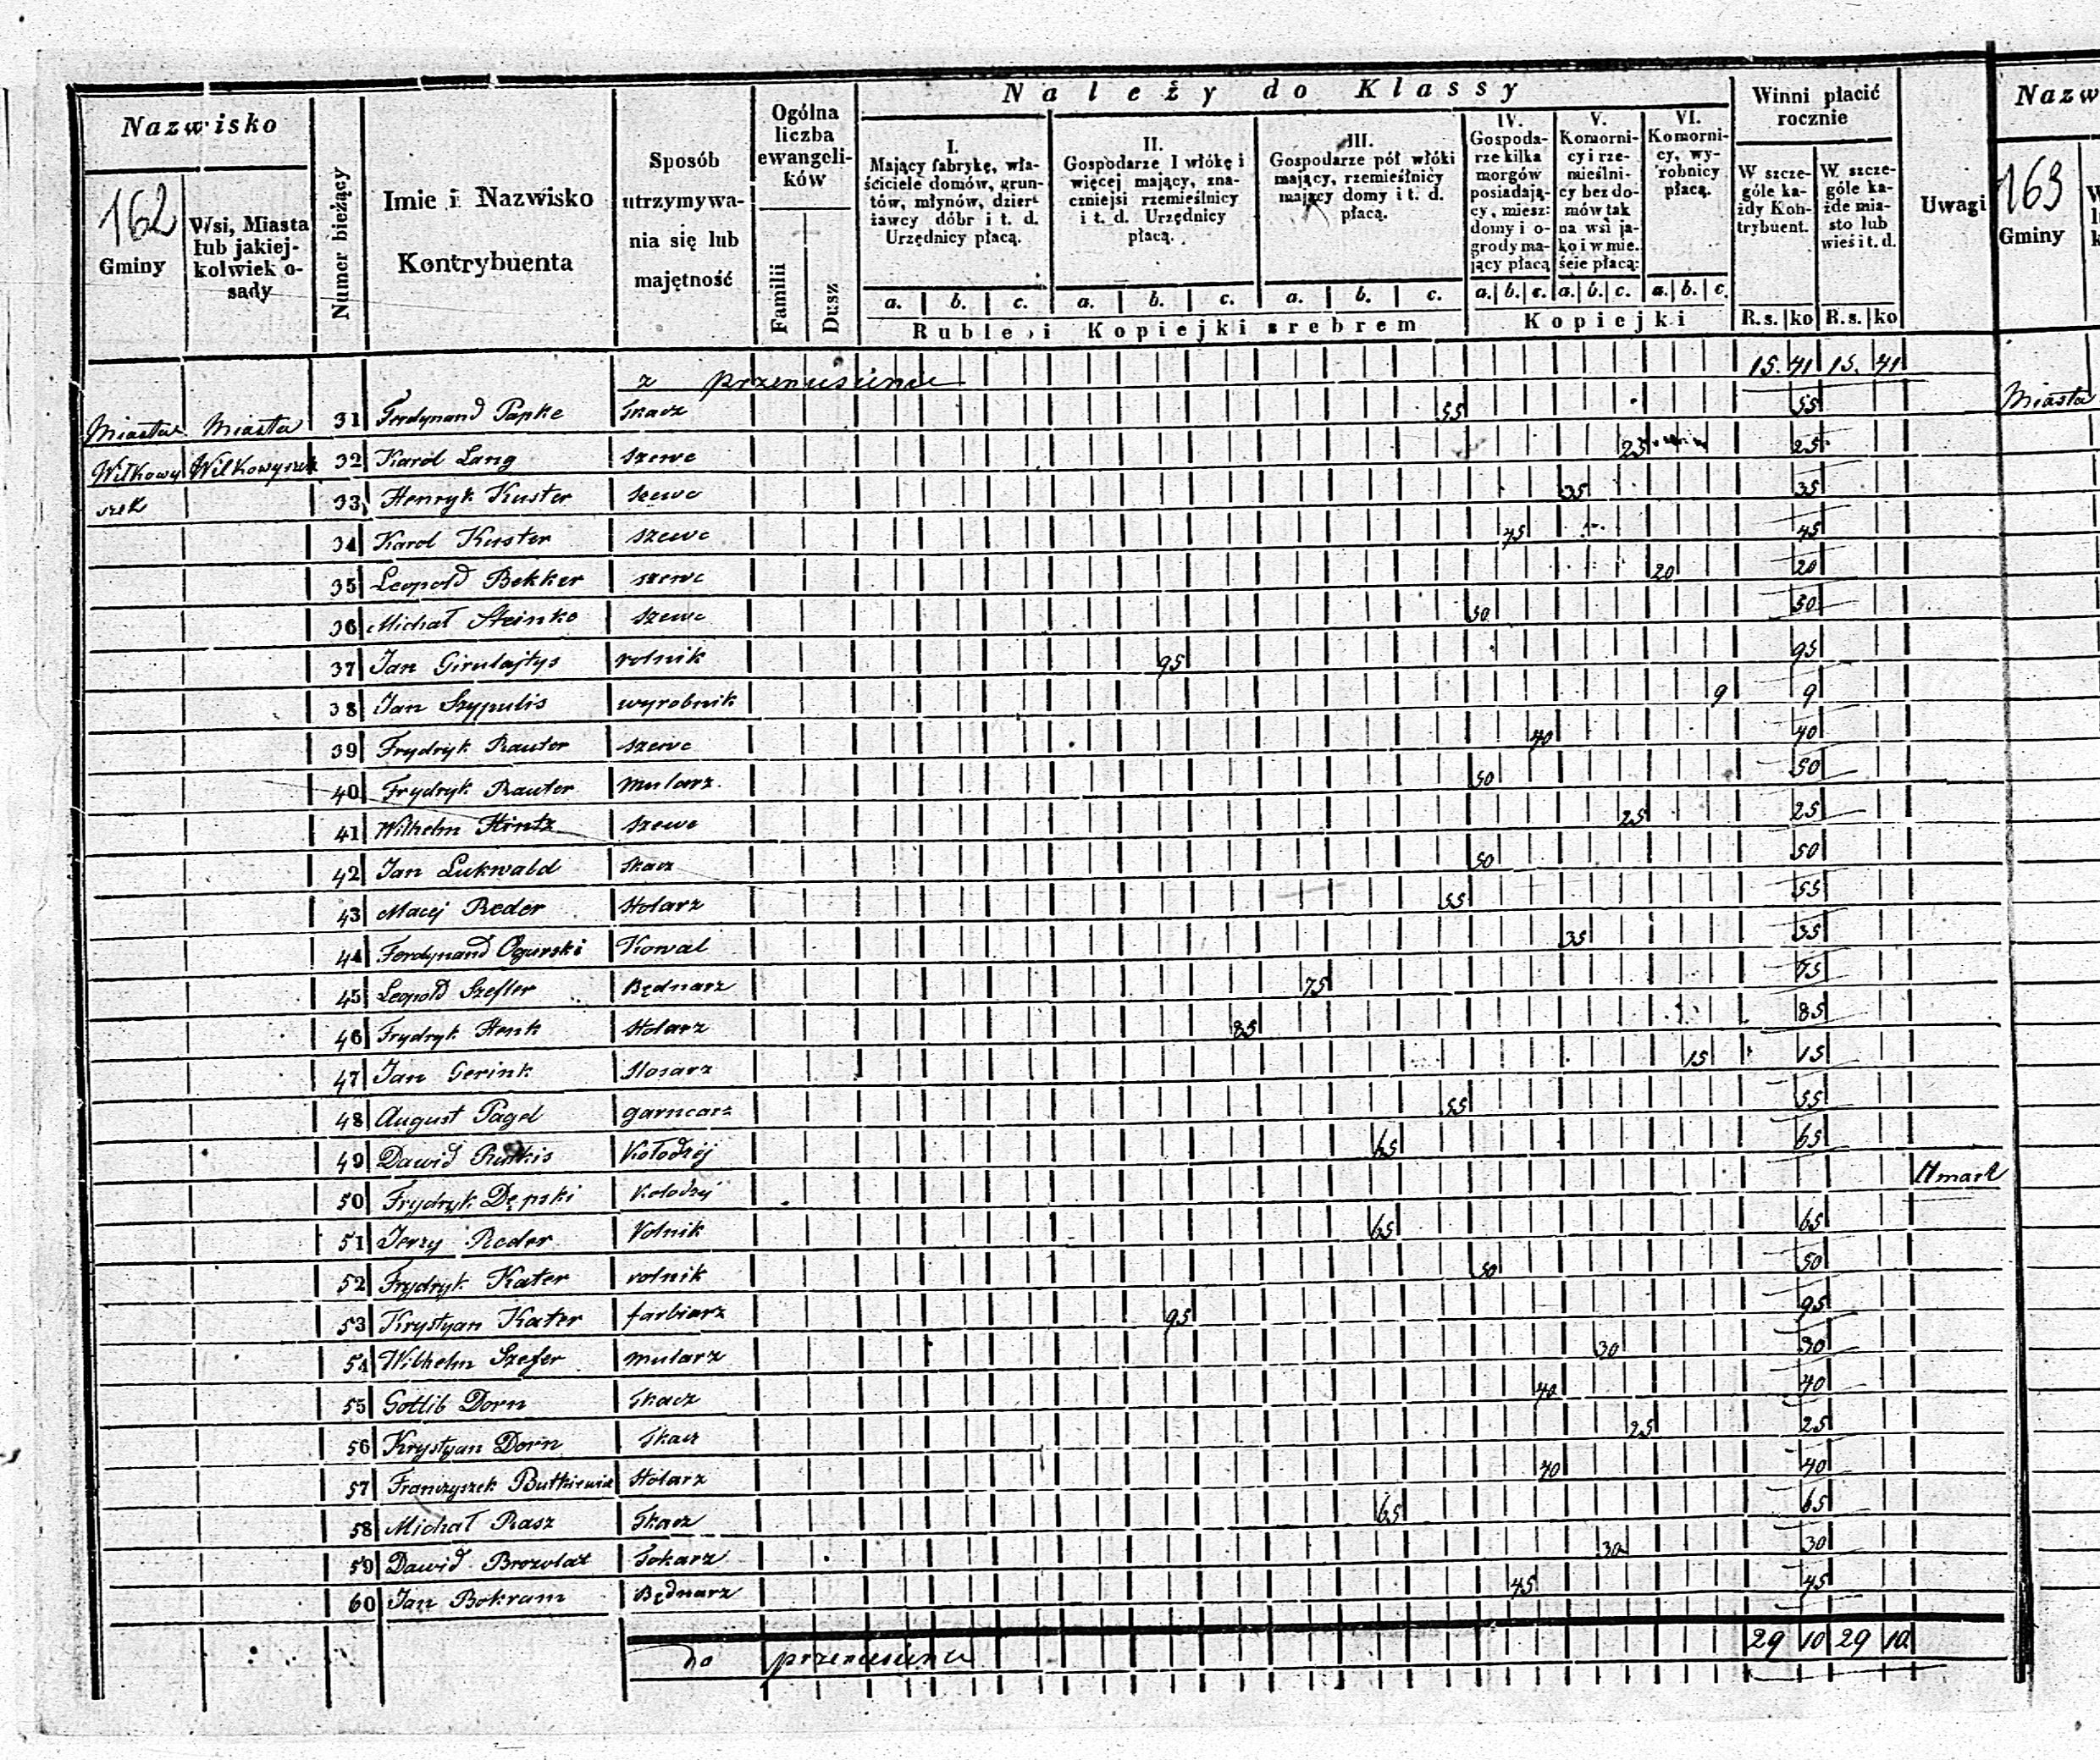 Nazwisko
162
Gminy
Wsi, Miasta
łub jakiej-
kolwiek o-
sady
Numer bieżący
Imie i Nazwisko
Kontrybuenta
Sposób
utrzymywa-
nia się lub
majętność
Ogólna
liczba
ewangeli-
ków
Familii
Dusz
Należy do Klassy
I.
Mający fabrykę, wła-
ściciele domów, grun-
tów, młynów, dzier-
żawcy dóbr i t. d.
Urzędnicy płacą.
II.
Gospodarze I włókę i
więcej mający, zna-
czniejsi rzemieślnicy
i t. d. Urzędnicy
płacą.
III.
Gospodarze pół włóki
mający, rzemieślnicy
mający domy i t. d.
płacą.
IV.
Gospoda-
rze kilka
morgów
posiadają-
cy, miesz:
domy i o-
grody ma-
jący płacą
V.
Komorni-
cy i rze-
mieślni-
cy bez do-
mów tak
na wsi ja-
ko i w mie-
ście płacą:
VI.
Komorni-
cy, wy-
robnicy
płacą.
a. b. c. a. b. c. a. b. c. a. b. c. a. b. c. a. b. c.
Ruble i Kopiejki srebrem
Kopiejki
Winni płacić
rocznie
W szcze-
góle ka-
żdy Kon-
trybuent.
W szcze-
góle ka-
żde mia-
sto lub
wieś i t. d.
R. s. ko R. s. ko
Uwagi
z przeniesienia 15. 41 15. 41
Miasta Miasta 31 Ferdynand Papke Tkacz 55 55
Wiłkowy Wiłkowyszek 32 Karol Lang szewc 25 25
szek 33 Henryk Kuster szewc 35 35
34 Karol Kuster szewc 45 45
35 Leopold Bekker szewc 20 20
36 Michał Steinke szewc 50 50
37 Jan Girulajtys rolnik 95 95
38 Jan Szypulis wyrobnik 9 9
39 Frydryk Rauter szewc 40 40
40 Frydryk Rauter mularz 50 50
41 Wilhelm Hintz szewc 25 25
42 Jan Lukwald Tkacz 50 50
43 Maciej Reder Stolarz 55 55
44 Ferdynand Ogurski Kowal 35 35
45 Leopold Szefler Będnarz 75 75
46 Frydryk Henk Stolarz 85 85
47 Jan Gerink slosarz 15 15
48 August Pagel garncarz 55 55
49 Dawid Kołodziej 65 65
50 Frydryk Dępski kołodziej Umarł
51 Jerzy Reder Rolnik 65 65
52 Frydryk Kater rolnik 50 50
53 Krystyan Kater farbiarz 95 95
54 Wilhelm Szefer mularz 30 30
55 Gotlib Dorn Tkacz 40 40
56 Krystyan Dorn Tkacz 25 25
57 Franczyszek Butkiewicz Stolarz 40 40
58 Michał Rasz Tkacz 65 65
59 Dawid Tokarz 30 30
60 Jan Bokram Będnarz 45 45
do przeniesienia 29 10 29 10
Nazw
163
Gminy
Miasta